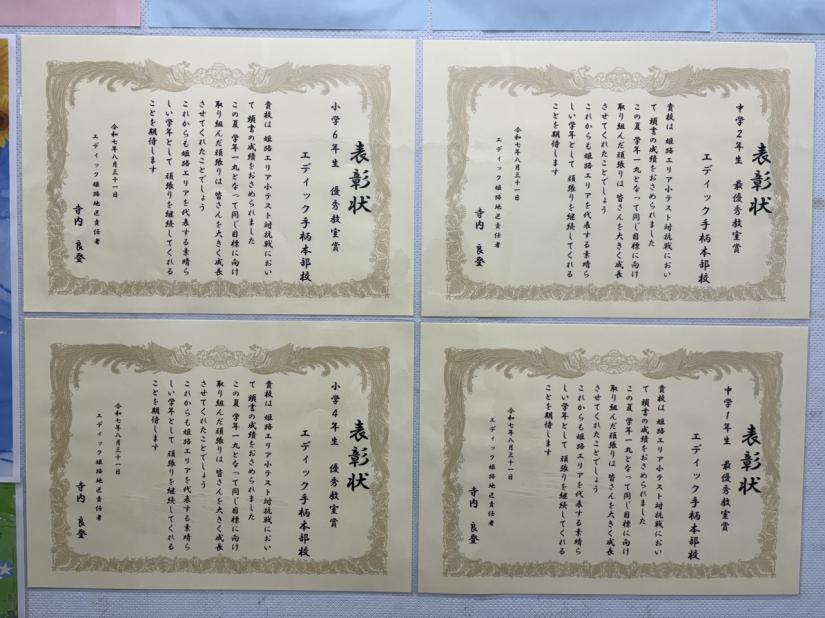 表彰状
小学6年生 優秀教室賞
エディック手柄本部校
貴校は 姫路エリア小テスト対抗戦におい
て 頭書の成績をおさめられました
この夏 学年一丸となって同じ目標に向け
取り組んだ頑張りは 皆さんを大きく成長
させてくれたことでしょう
これからも姫路エリアを代表する素晴ら
しい学年として 頑張りを継続してくれる
ことを期待します
令和七年八月三十一日
エディック姫路地区責任者
寺内 良登
表彰状
中学2年生 最優秀教室賞
エディック手柄本部校
貴校は 姫路エリア小テスト対抗戦におい
て 頭書の成績をおさめられました
この夏 学年一丸となって同じ目標に向け
取り組んだ頑張りは 皆さんを大きく成長
させてくれたことでしょう
これからも姫路エリアを代表する素晴ら
しい学年として 頑張りを継続してくれる
ことを期待します
令和七年八月三十一日
エディック姫路地区責任者
寺内 良登
表彰状
小学4年生 優秀教室賞
エディック手柄本部校
貴校は 姫路エリア小テスト対抗戦におい
て 頭書の成績をおさめられました
この夏 学年一丸となって同じ目標に向け
取り組んだ頑張りは 皆さんを大きく成長
させてくれたことでしょう
これからも姫路エリアを代表する素晴ら
しい学年として 頑張りを継続してくれる
ことを期待します
令和七年八月三十一日
エディック姫路地区責任者
寺内 良登
表彰状
中学1年生 最優秀教室賞
エディック手柄本部校
貴校は 姫路エリア小テスト対抗戦におい
て 頭書の成績をおさめられました
この夏 学年一丸となって同じ目標に向け
取り組んだ頑張りは 皆さんを大きく成長
させてくれたことでしょう
これからも姫路エリアを代表する素晴ら
しい学年として 頑張りを継続してくれる
ことを期待します
令和七年八月三十一日
エディック姫路地区責任者
寺内 良登